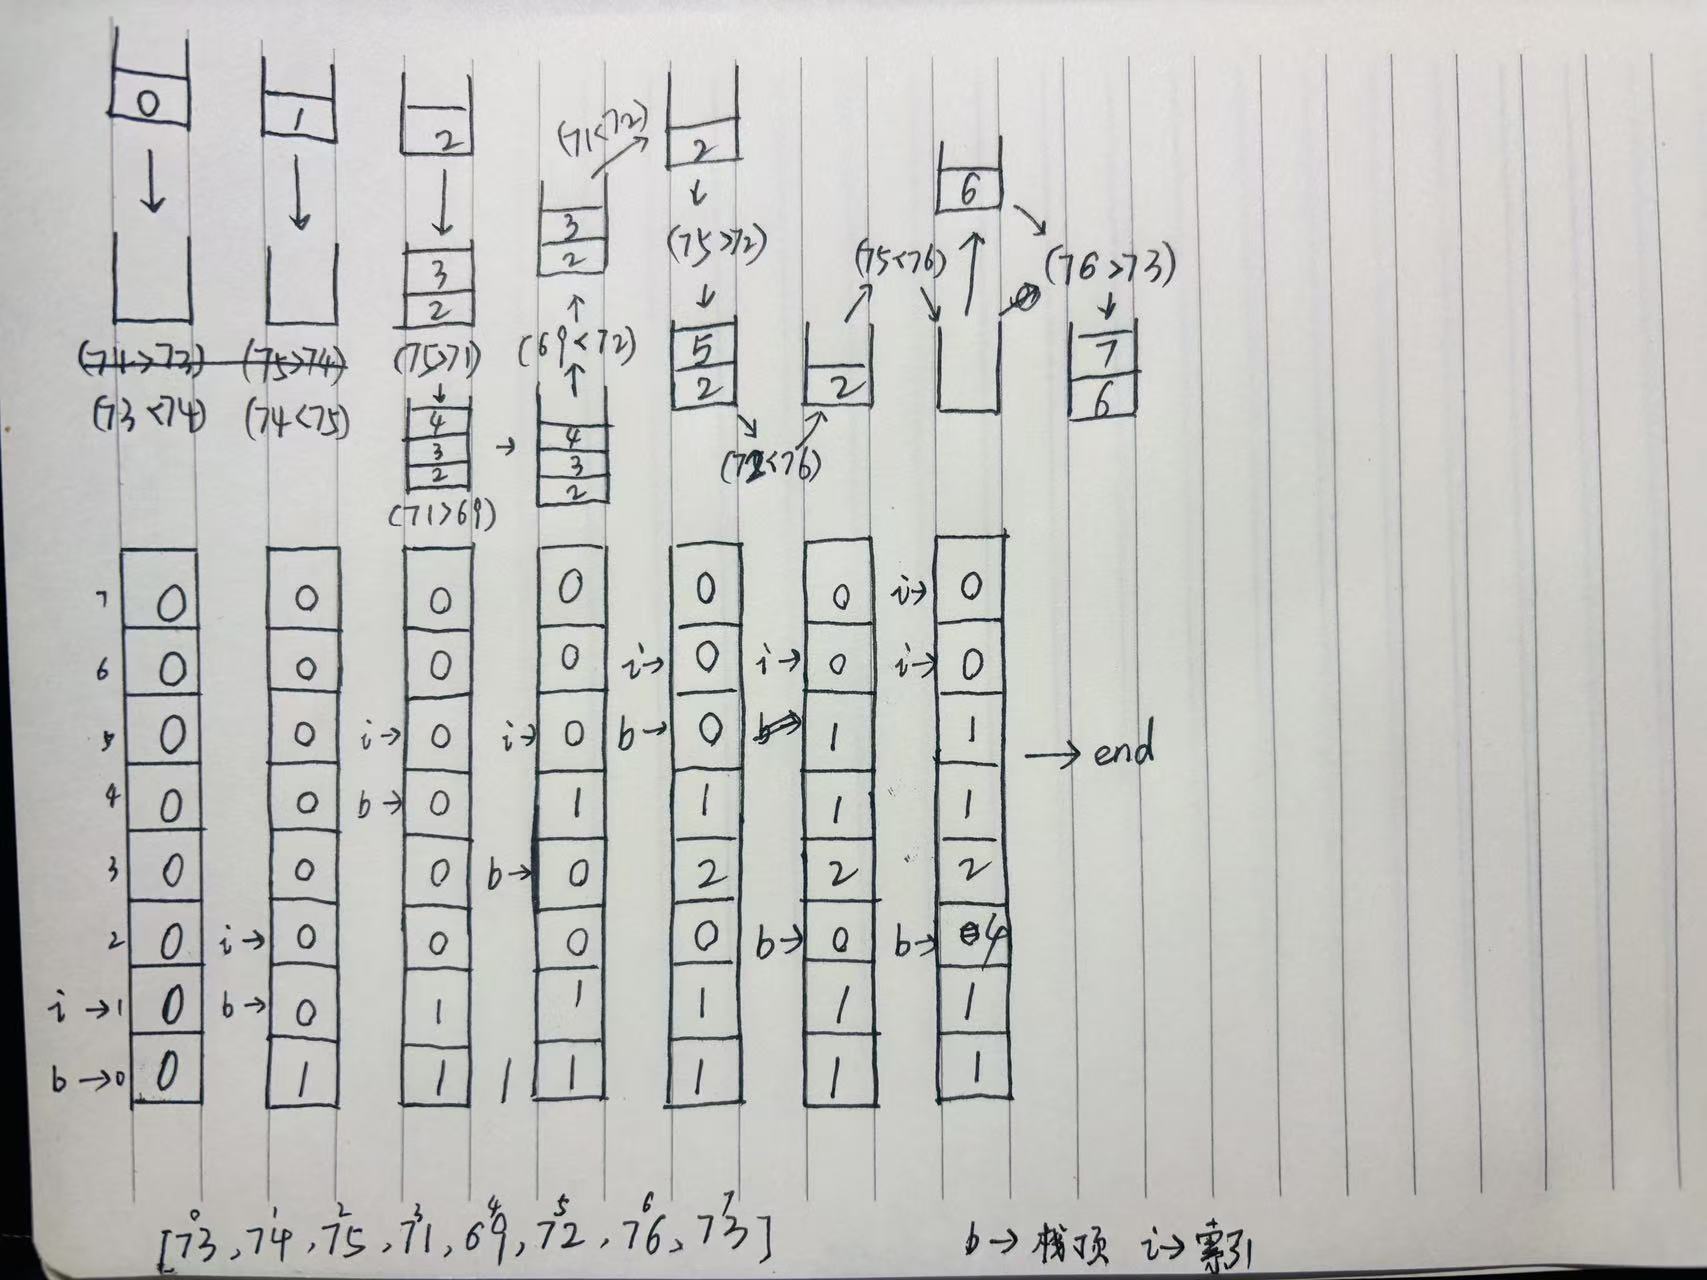 0
1
2
(71<72)
2
3
2
6
3
2
(75>72)
(75<76)
(76>73)
(74>73)
(75>74)
(75>71)
(69<72)
5
2
2
7
6
(73<74)
(74<75)
4
3
2
4
3
2
(72<76)
(71>69)
7 0 0 0 0 0 0 i→ 0
6 0 0 0 0 i→ 0 i→ 0 i→ 0
5 0 0 i→ 0 i→ 0 b→ 0 b→ 1 1 → end
4 0 0 b→ 0 1 1 1 1
3 0 0 0 b→ 0 2 2 2
2 0 i→ 0 0 0 0 b→ 0 b→ 4
i→ 1 0 b→ 0 1 1 1 1 1
b→ 0 0 1 1 1 1 1 1 1
0 1 2 3 4 5 6 7
[73,74,75,71,69,72,76,73]
b→栈顶 i→索引